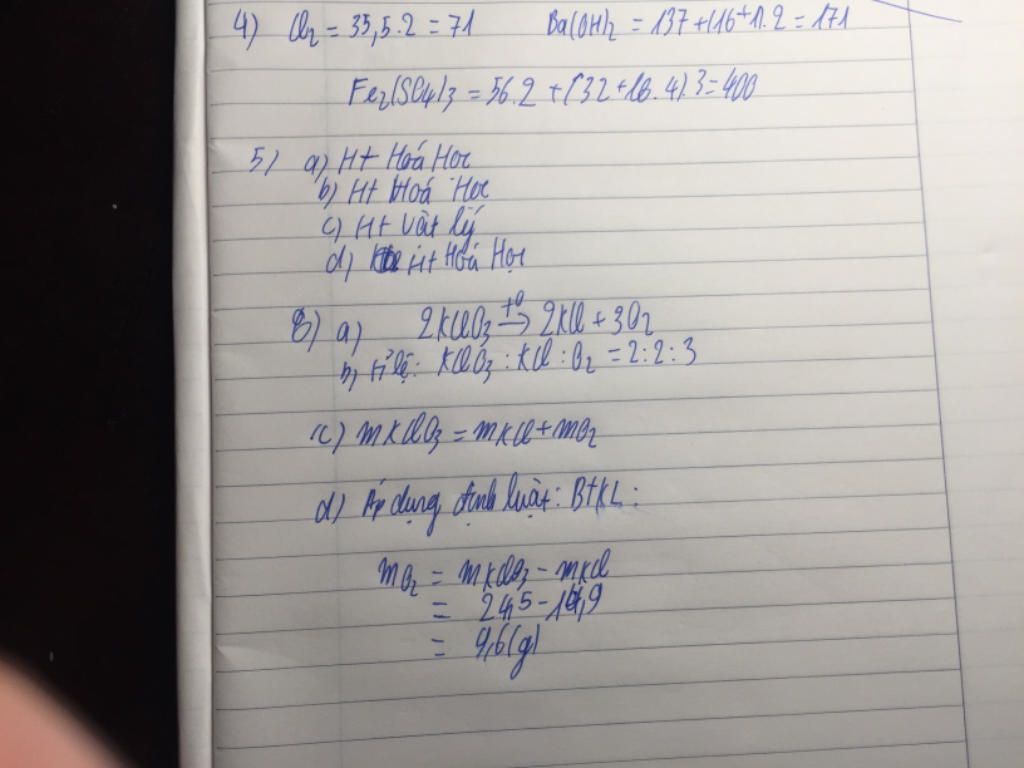 4) Cl₂ = 35,5.2 = 71 Ba(OH)₂ = 137 + (16+1).2 = 171
Fe₂(SO₄)₃ = 56.2 + (32+16.4).3 = 400
5) a) Ht Hoá Học
b) Ht Hoá Học
c) Ht Vật lý
d) Ht Hoá Học
8) a) 2KClO₃ →(t⁰) 2KCl + 3O₂
b) tỉ lệ: KClO₃ : KCl : O₂ = 2:2:3
c) mKClO₃ = mKCl + mO₂
d) Áp dụng định luật: BtKL:
mO₂ = mKClO₃ - mKCl
= 24,5 - 14,9
= 9,6(g)